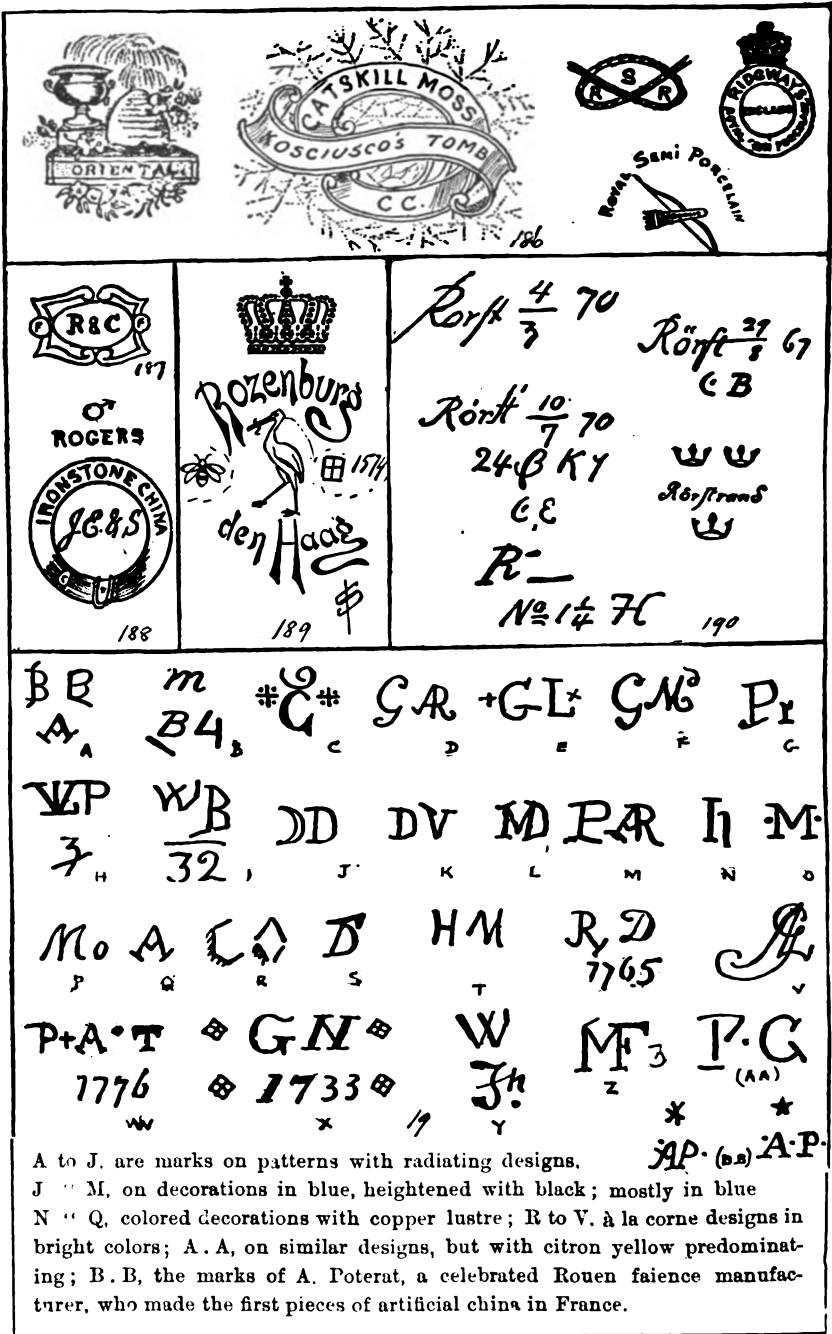 ORIENTAL
CATSKILL MOSS
KOSCIUSCO'S TOMB
C.C.
186
R S R
RIDGWAYS
ENGLAND
ROYAL SEMI PORCELAIN
F R & C F
187
ROGERS
IRONSTONE CHINA
J.E.&S
188
Rozenburg
den Haag
189
Rorft 4/3 70
Rörft 29/8 67
C B
Rörft 10/7 70
24 β K Y
C, E
Rörftrand
R
No 1 1/4 H
190
B B
A
A
m
B 4
B
C
C
G AR
D
+GL+
E
GM
F
Pr
G
VLP
3
H
WB
32
DD
J
DV
K
MD
L
PAR
M
N
·M·
O
Mo
P
A
Q
R
S
HM
T
R, D
1765
V
P+A·T
1776
W
GN
1733
X
19
W
Fh.
Y
MF 3
Z
P·G
(AA)
AP· (B.B) ·A·P·
A to J. are marks on patterns with radiating designs.
J " M, on decorations in blue, heightened with black; mostly in blue
N " Q, colored decorations with copper lustre; R to V. à la corne designs in
bright colors; A. A, on similar designs, but with citron yellow predominat-
ing; B. B, the marks of A. Poterat, a celebrated Rouen faience manufac-
turer, who made the first pieces of artificial china in France.